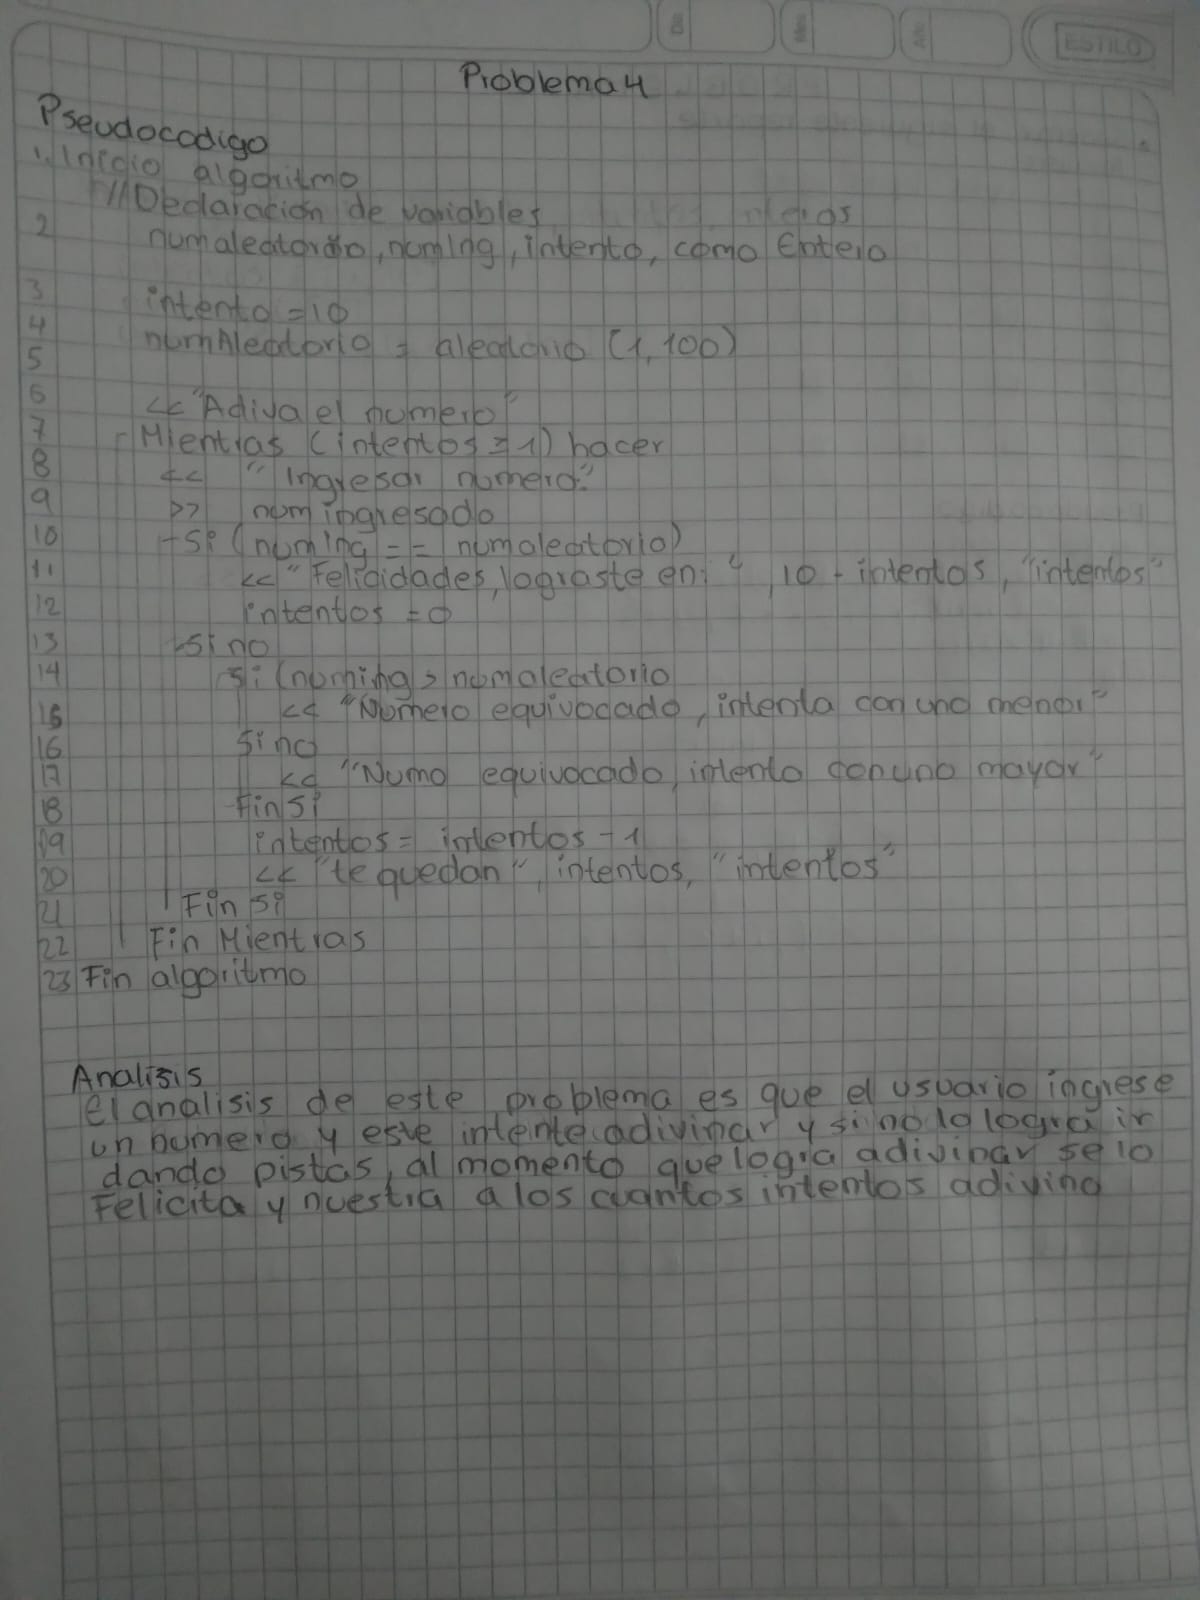 ESTILO
Problema 4
Pseudocodigo
1. Inicio algoritmo
//Declaracion de variables
2 numaleatorio, numing, intento, como Entero
3 intento = 10
4 numAleatorio = aleatorio (1, 100)
5
6 << "Adiva el numero"
7 Mientras (intentos ≥ 1) hacer
8 << "Ingresar numero:"
9 >> num ingresado
10 Si (numing == numaleatorio)
11 << "Felicidades, lograste en: ", 10 - intentos, "intentos"
12 intentos = 0
13 Sino
14 Si (numing > numaleatorio
15 << "Numero equivocado, intenta con uno menor"
16 Sino
17 << "Numo equivocado, intento con uno mayor"
18 Fin Si
19 intentos = intentos - 1
20 << "te quedan", intentos, "intentos"
21 Fin Si
22 Fin Mientras
23 Fin algoritmo
Analisis
el analisis de este problema es que el usuario ingrese
un numero y este intente adivinar y si no lo logra ir
dando pistas, al momento que logra adivinar se lo
Felicita y nuestra a los cuantos intentos adivino